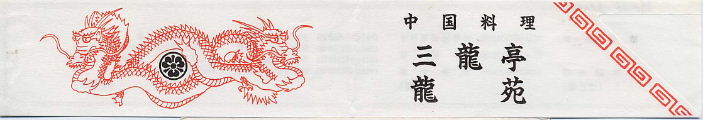 中国料理
三龍亭
龍苑